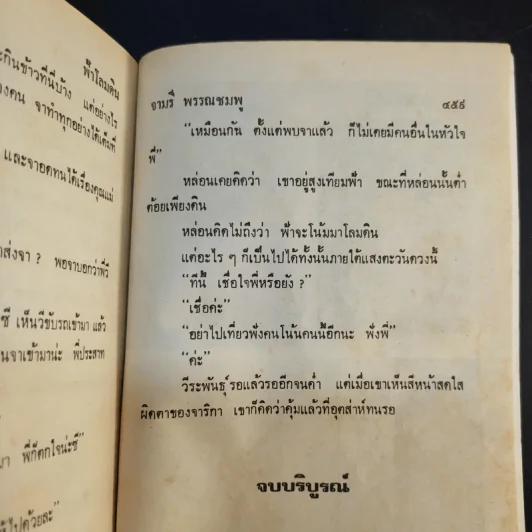 ะกินข้าวที่นี่บ้าง แต่อย่างไร
องคน จาทำทุกอย่างได้เต็มที่
และจาอดทนได้เรื่องคุณแม่
ส่งจา ? พอจาบอกว่าพี่วี
ซี เห็นวีขับรถเข้ามา แล้ว
นจาเข้ามาน่ะ พี่ประสาท
มา พี่ก็ตกใจน่ะซี”
ไปด้วยละ”
ฟ้าโลมดิน
จามรี พรรณชมพู ๔๕๙
“เหมือนกัน ตั้งแต่พบจาแล้ว ก็ไม่เคยมีคนอื่นในหัวใจ
พี่”
หล่อนเคยคิดว่า เขาอยู่สูงเทียมฟ้า ขณะที่หล่อนนั้นต่ำ
ต้อยเพียงดิน
หล่อนคิดไม่ถึงว่า ฟ้าจะโน้มมาโลมดิน
แต่อะไร ๆ ก็เป็นไปได้ทั้งนั้นภายใต้แสงตะวันดวงนี้
“ทีนี้ เชื่อใจพี่หรือยัง ?”
“เชื่อค่ะ”
“อย่าไปเที่ยวฟังคนโน้นคนนี้อีกนะ ฟังพี่”
“ค่ะ”
วีระพันธุ์ รอแล้วรออีกจนค่ำ แต่เมื่อเขาเห็นสีหน้าสดใส
ผิดตาของจาริกา เขาก็คิดว่าคุ้มแล้วที่อุตส่าห์ทนรอ
จบบริบูรณ์